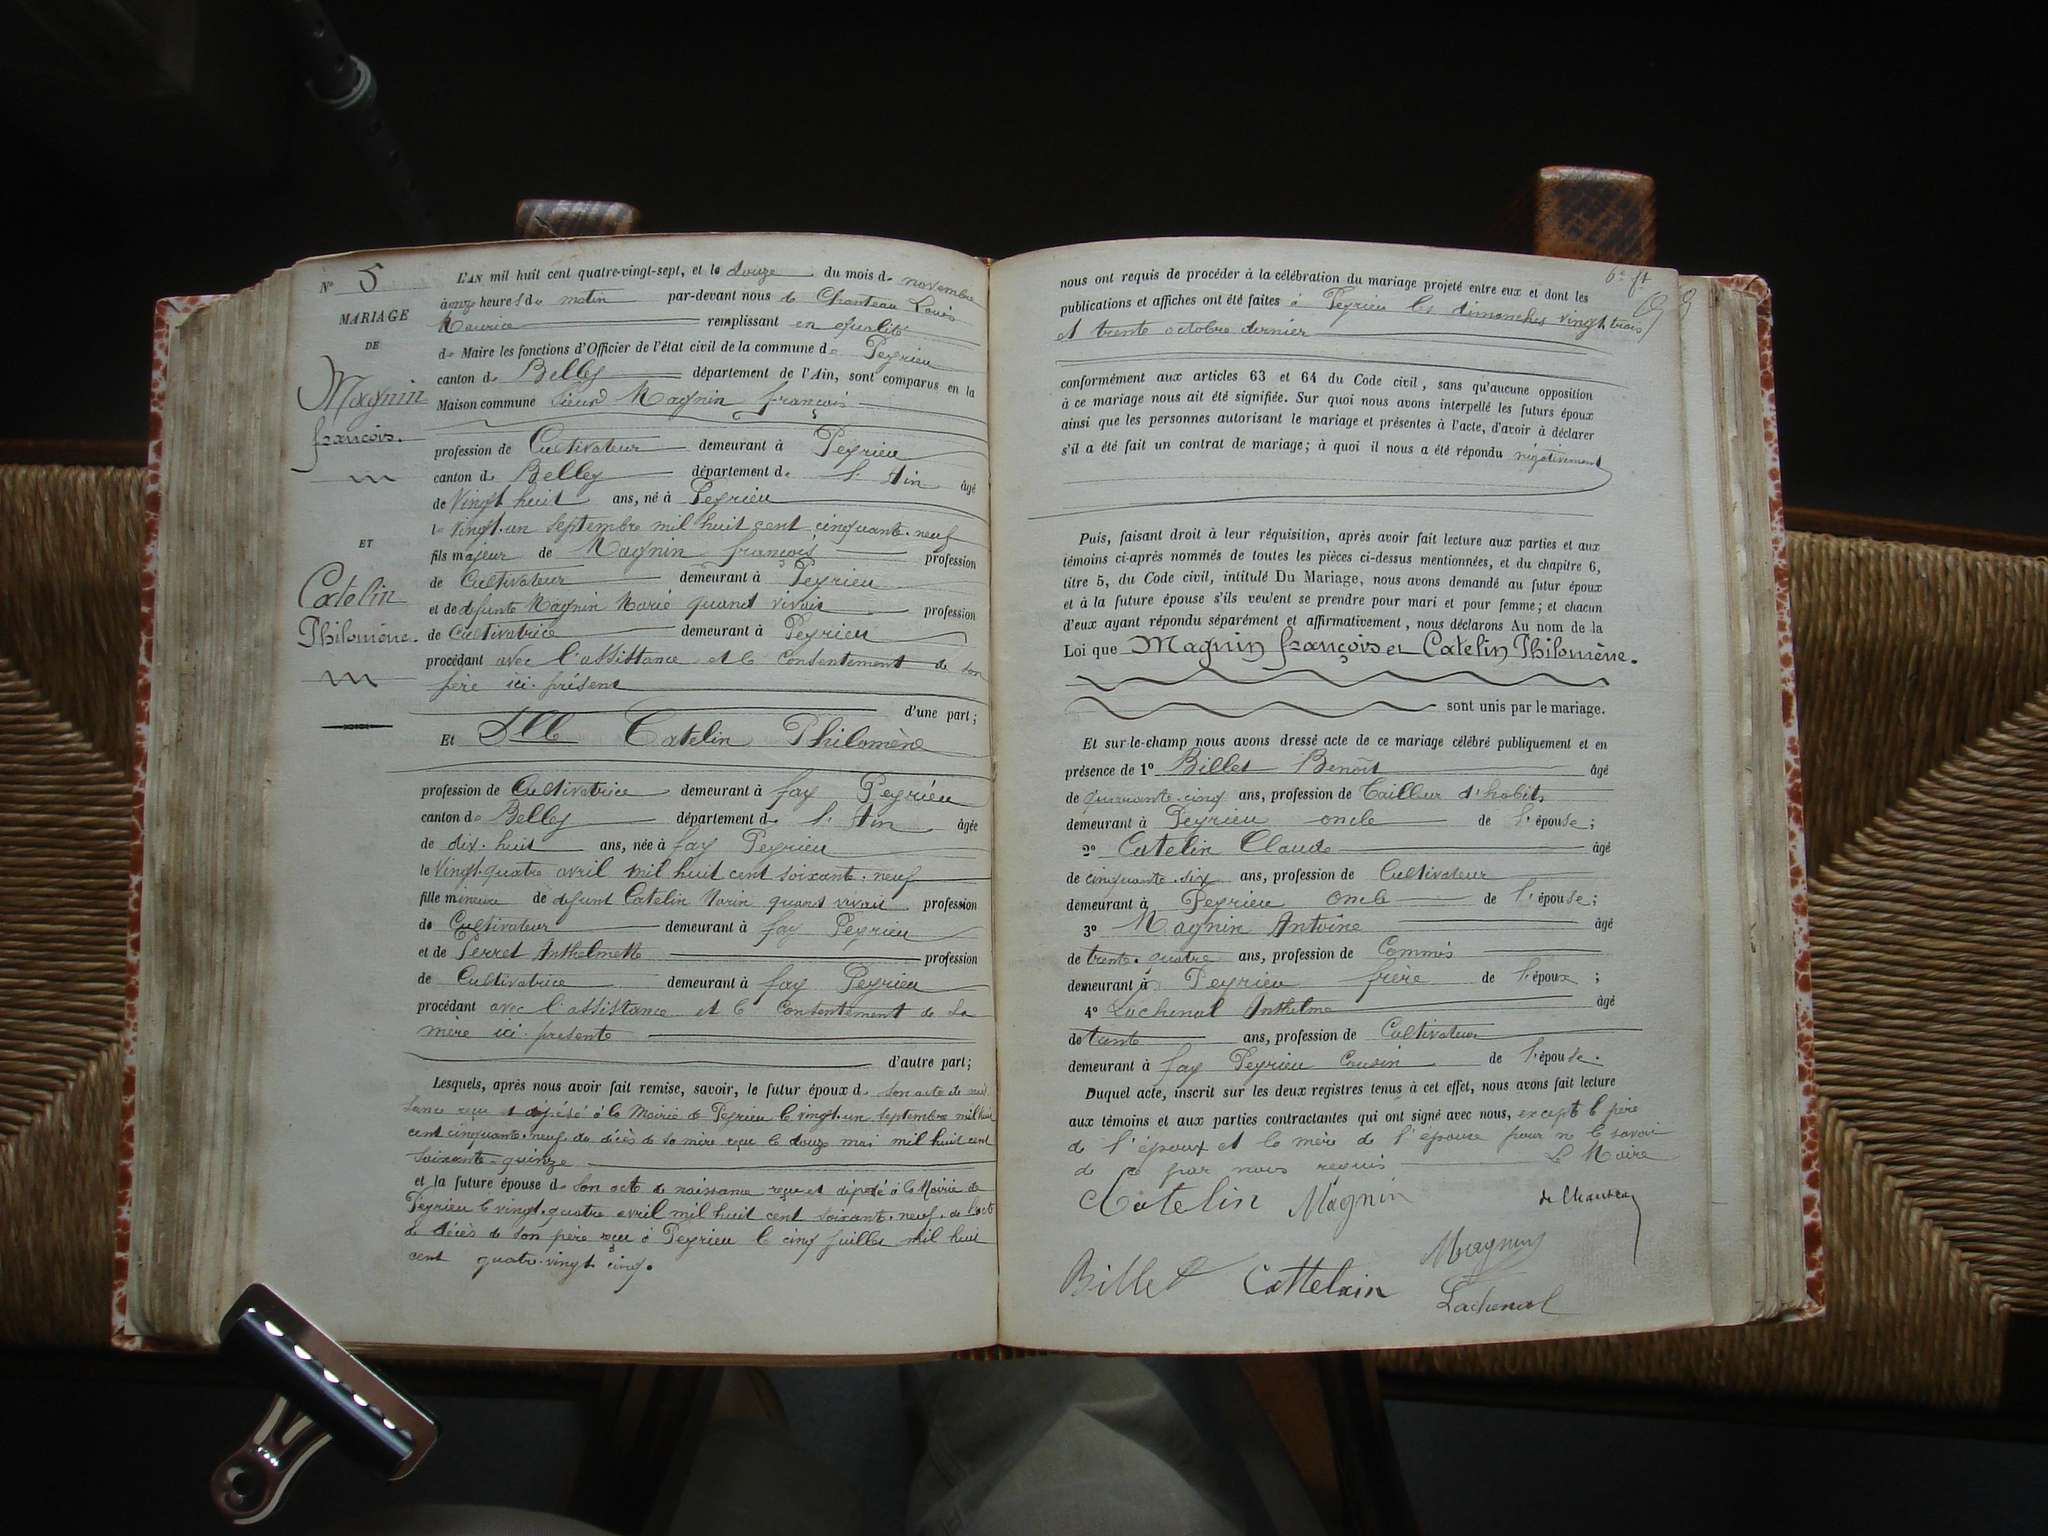 N° 5
MARIAGE
DE
Magnin
françois.
ET
Catelin
Philomène.
L'AN mil huit cent quatre-vingt-sept, et le douze du mois de novembre
à onze heures du matin par-devant nous de Chanteau Louis
Maurice remplissant en qualité
de Maire les fonctions d'Officier de l'état civil de la commune de Peyrieu
canton de Belley département de l'Ain, sont comparus en la
Maison commune Sieur Magnin françois
profession de Cultivateur demeurant à Peyrieu
canton de Belley département de l'Ain âgé
de Vingt huit ans, né à Peyrieu
le Vingt-un septembre mil huit cent cinquante-neuf
fils majeur de Magnin françois profession
de Cultivateur demeurant à Peyrieu
et de défunte Magnin Marie quand vivait profession
de Cultivatrice demeurant à Peyrieu
procédant avec l'assistance et le consentement de son
père ici présent
d'une part;
Et Dlle Catelin Philomène
profession de Cultivatrice demeurant à fay Peyrieu
canton de Belley département de l'Ain âgée
de dix-huit ans, née à fay Peyrieu
le Vingt-quatre avril mil huit cent soixante-neuf
fille mineure de défunt Catelin Marin quand vivait profession
de Cultivateur demeurant à fay Peyrieu
et de Perret Anthelmette profession
de Cultivatrice demeurant à fay Peyrieu
procédant avec l'assistance et le consentement de sa
mère ici présente
d'autre part;
Lesquels, après nous avoir fait remise, savoir, le futur époux de son acte de nais
sance reçu et déposé à la Mairie de Peyrieu le vingt-un septembre mil huit
cent cinquante-neuf de décès de sa mère reçu le douze mai mil huit cent
soixante-quinze
et la future épouse de son acte de naissance reçu et déposé à la Mairie de
Peyrieu le vingt-quatre avril mil huit cent soixante-neuf. de l'acte
de décès de son père reçu à Peyrieu le cinq juillet mil huit
cent quatre-vingt cinq.
6e ft
nous ont requis de procéder à la célébration du mariage projeté entre eux et dont les
publications et affiches ont été faites à Peyrieu les dimanches vingt-trois
et trente octobre dernier
conformément aux articles 63 et 64 du Code civil, sans qu'aucune opposition
à ce mariage nous ait été signifiée. Sur quoi nous avons interpellé les futurs époux
ainsi que les personnes autorisant le mariage et présentes à l'acte, d'avoir à déclarer
s'il a été fait un contrat de mariage; à quoi il nous a été répondu négativement
Puis, faisant droit à leur réquisition, après avoir fait lecture aux parties et aux
témoins ci-après nommés de toutes les pièces ci-dessus mentionnées, et du chapitre 6,
titre 5, du Code civil, intitulé Du Mariage, nous avons demandé au futur époux
et à la future épouse s'ils veulent se prendre pour mari et pour femme; et chacun
d'eux ayant répondu séparément et affirmativement, nous déclarons Au nom de la
Loi que Magnin françois et Catelin Philomène.
sont unis par le mariage.
Et sur-le-champ nous avons dressé acte de ce mariage célébré publiquement et en
présence de 1° Billet Benoît âgé
de quarante-cinq ans, profession de Tailleur d'habits
demeurant à Peyrieu oncle de l'épouse;
2° Catelin Claude âgé
de cinquante-six ans, profession de Cultivateur
demeurant à Peyrieu oncle de l'épouse;
3° Magnin Antoine âgé
de trente-quatre ans, profession de Commis
demeurant à Peyrieu frère de l'époux;
4° Lachenal Anthelme âgé
de trente ans, profession de Cultivateur
demeurant à fay Peyrieu Cousin de l'épouse.
Duquel acte, inscrit sur les deux registres tenus à cet effet, nous avons fait lecture
aux témoins et aux parties contractantes qui ont signé avec nous, excepté le père
de l'époux et la mère de l'épouse pour ne le savoir
de ce par nous requis Le Maire
Catelin Magnin de Chanteau
Magnin
Billet Cattelain
Lachenal